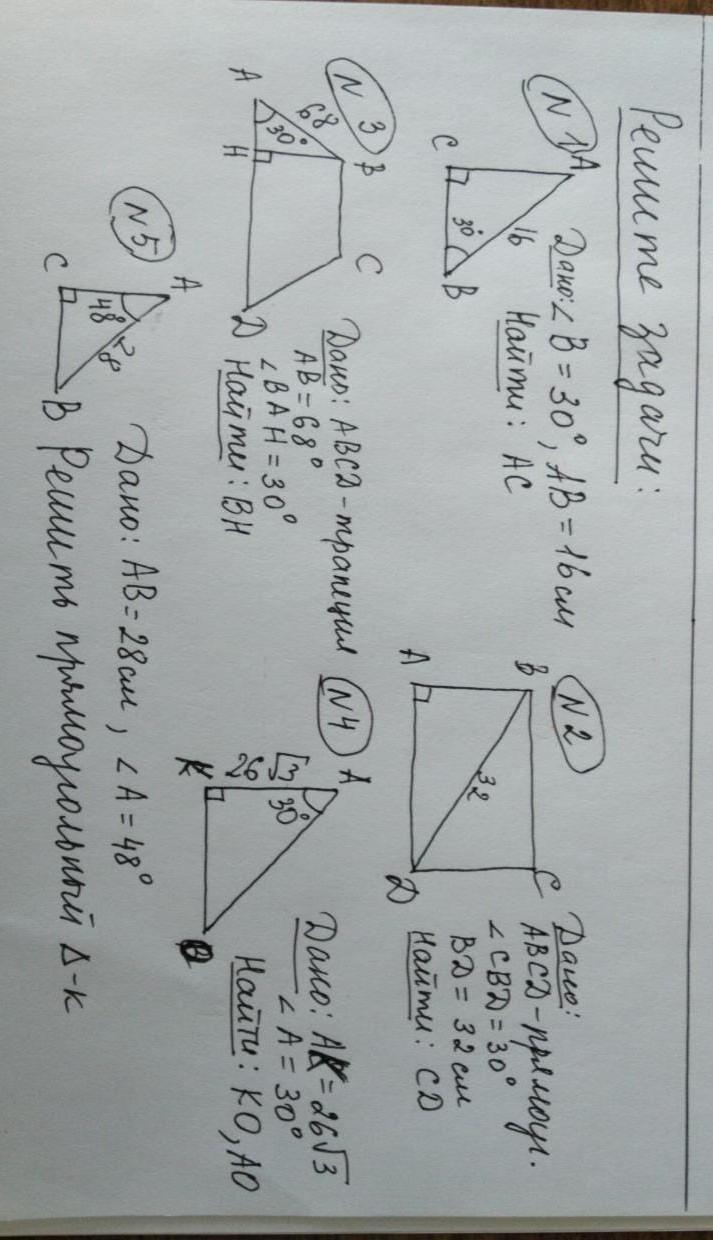 Решите задачи:
N 1
A
C
B
16
30°
Дано: ∠B = 30°, AB = 16 см
Найти: AC
N 2
B
C
A
D
32
Дано:
ABCD - прямоуг.
∠CBD = 30°
BD = 32 см
Найти: CD
N 3
A
B
C
D
H
68
30°
Дано: ABCD - трапеция
AB = 68°
∠BAH = 30°
Найти: BH
N4
A
K
O
26√3
30°
Дано: AK = 26√3
∠A = 30°
Найти: KO, AO
N5
A
C
B
48°
28
Дано: AB = 28 см, ∠A = 48°
Решить прямоугольный Δ-к